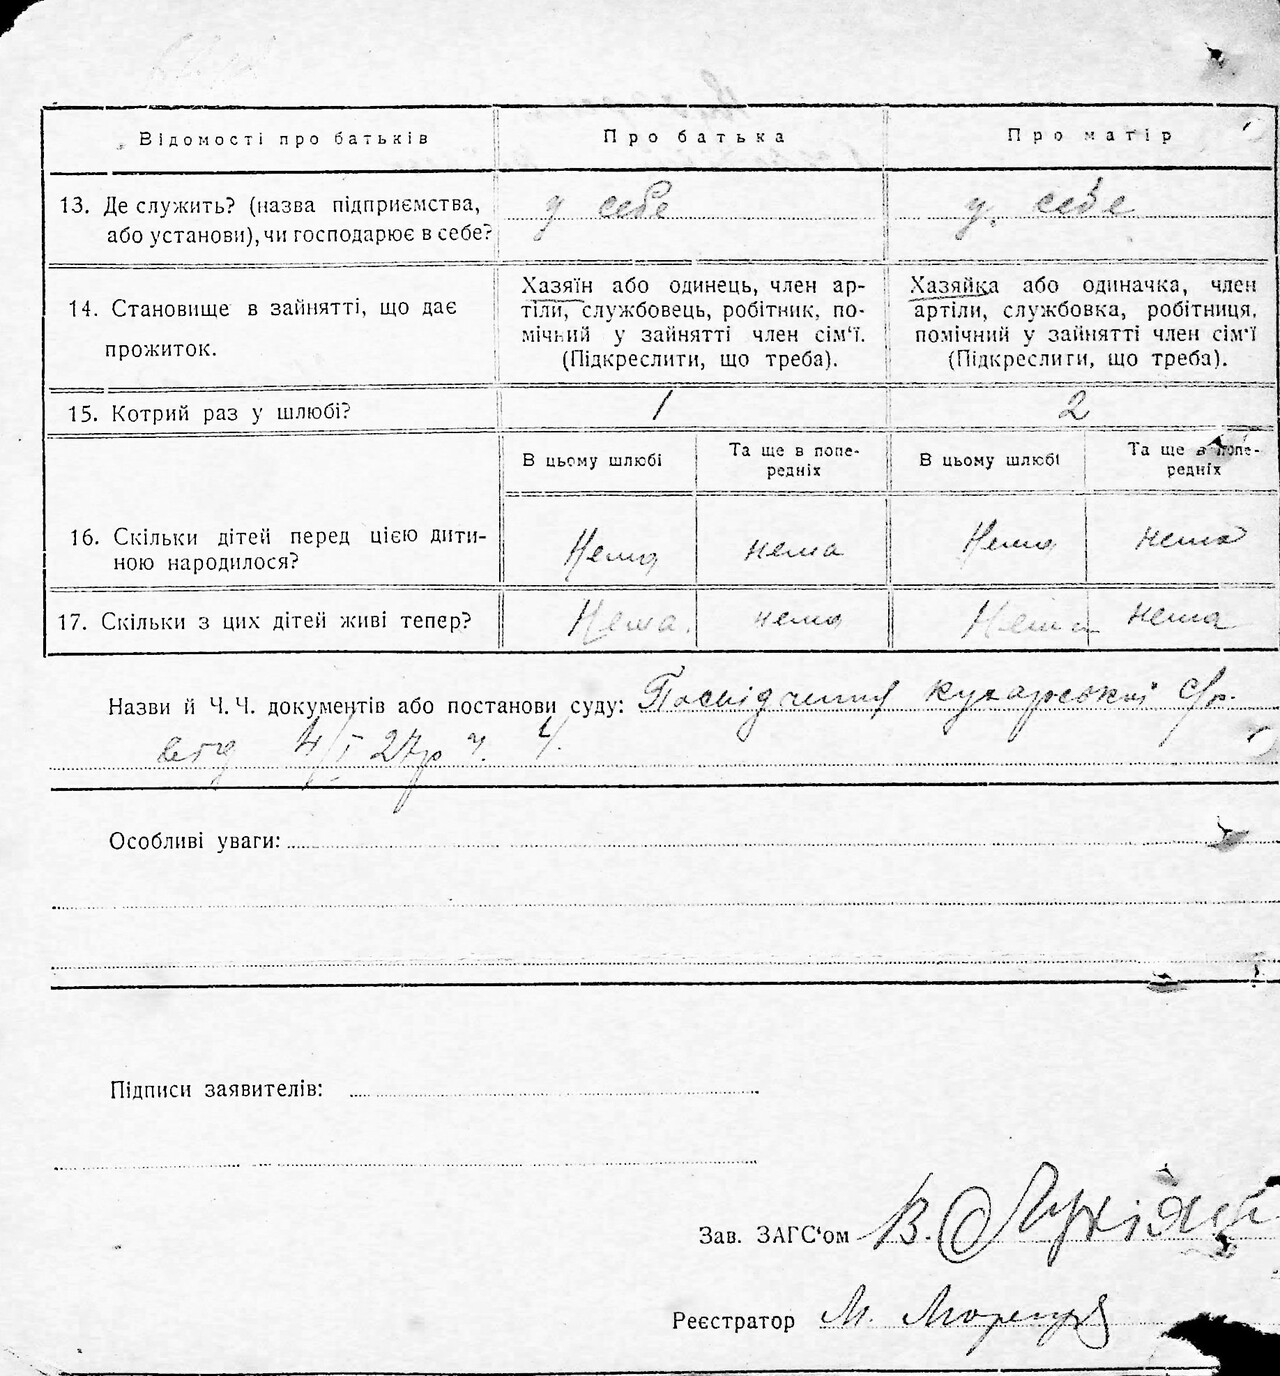 Відомості про батьків Про батька Про матір
13. Де служить? (назва підприємства, у себе у себе
або установи), чи господарює в себе?
14. Становище в зайнятті, що дає
прожиток.
Хазяїн або одинець, член ар-
тіли, службовець, робітник, по-
мічний у зайнятті член сім'ї.
(Підкреслити, що треба).
Хазяйка або одиначка, член
артіли, службовка, робітниця,
помічний у зайнятті член сім'ї
(Підкреслити, що треба).
15. Котрий раз у шлюбі? 1 2
В цьому шлюбі Та ще в попе-
редніх
В цьому шлюбі Та ще в попе-
редніх
16. Скільки дітей перед цією дити-
ною народилося?
Нема нема Нема нема
17. Скільки з цих дітей живі тепер? Нема нема Нема нема
Назви й Ч. Ч. документів або постанови суду: Посвідчення кухарської с/р.
від 4/I 27р ч. 4.
Особливі уваги:
Підписи заявителів:
Зав. ЗАГС'ом В.
Реєстратор М.